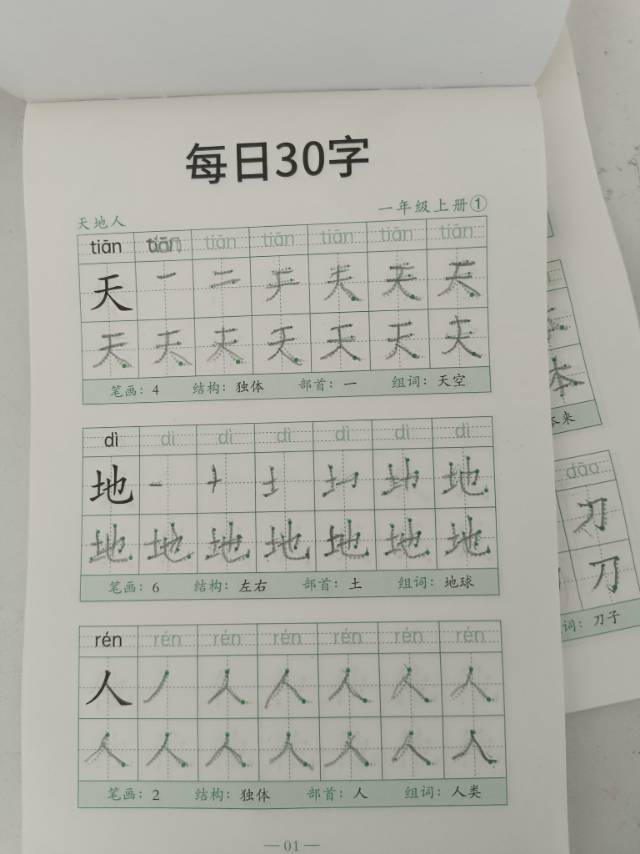 每日30字
天地人 一年级上册①
tiān tiān tiān tiān tiān tiān tiān
天 一 二 チ 天 天 天
天 天 天 天 天 天 天
笔画：4 结构：独体 部首：一 组词：天空
dì dì dì dì dì dì dì
地
地 地 地 地 地 地 地
笔画：6 结构：左右 部首：土 组词：地球
rén rén rén rén rén rén rén
人 丿 人 人 人 人 人
人 人 人 人 人 人 人
笔画：2 结构：独体 部首：人 组词：人类
— 01 —
本
本来
dāo
刀
刀
词：刀子